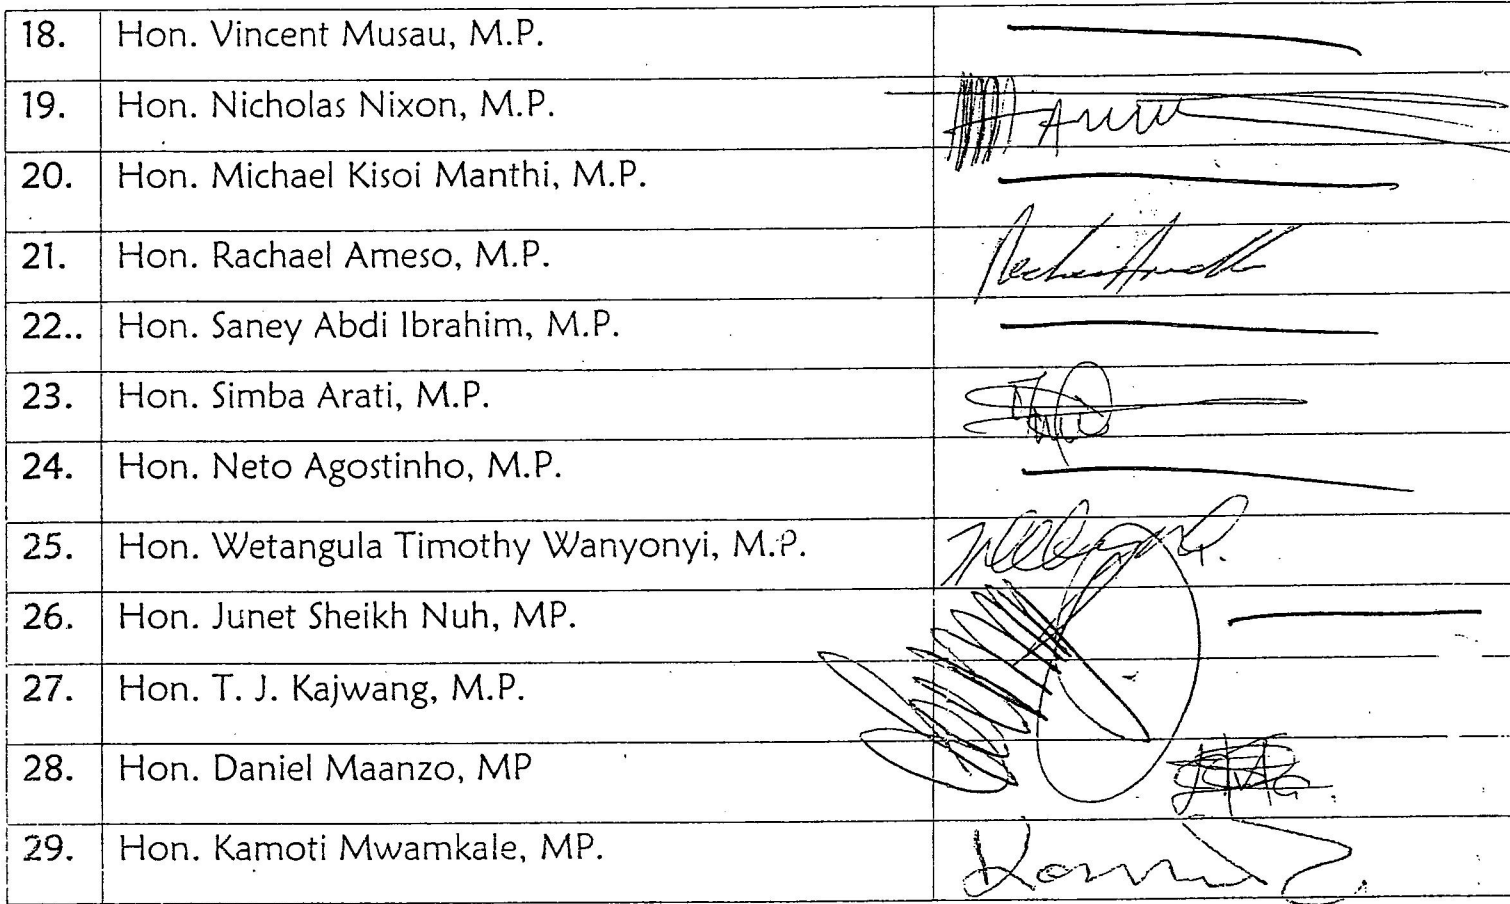 18. Hon. Vincent Musau, M.P.
19. Hon. Nicholas Nixon, M.P.
20. Hon. Michael Kisoi Manthi, M.P.
21. Hon. Rachael Ameso, M.P.
22.. Hon. Saney Abdi Ibrahim, M.P.
23. Hon. Simba Arati, M.P.
24. Hon. Neto Agostinho, M.P.
25. Hon. Wetangula Timothy Wanyonyi, M.P.
26. Hon. Junet Sheikh Nuh, MP.
27. Hon. T. J. Kajwang, M.P.
28. Hon. Daniel Maanzo, MP
29. Hon. Kamoti Mwamkale, MP.